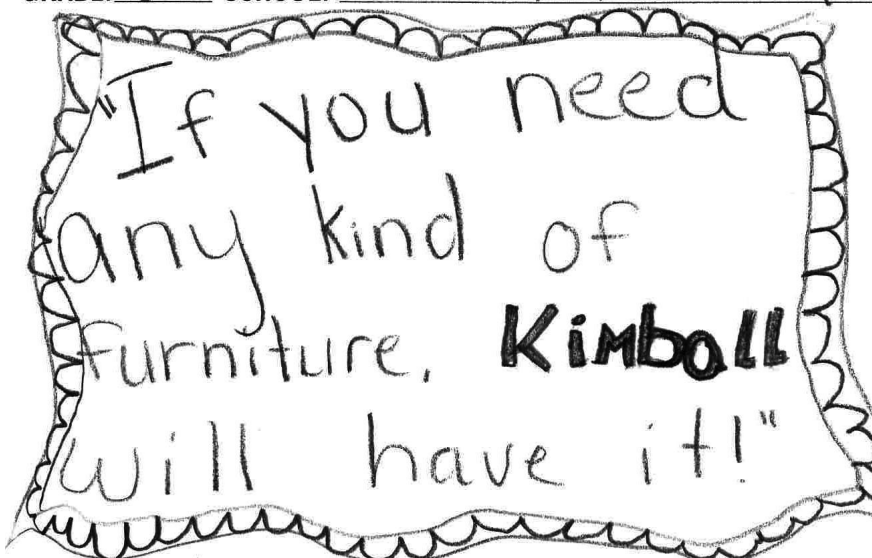 "If you need
any kind of
furniture, Kimball
will have it!"